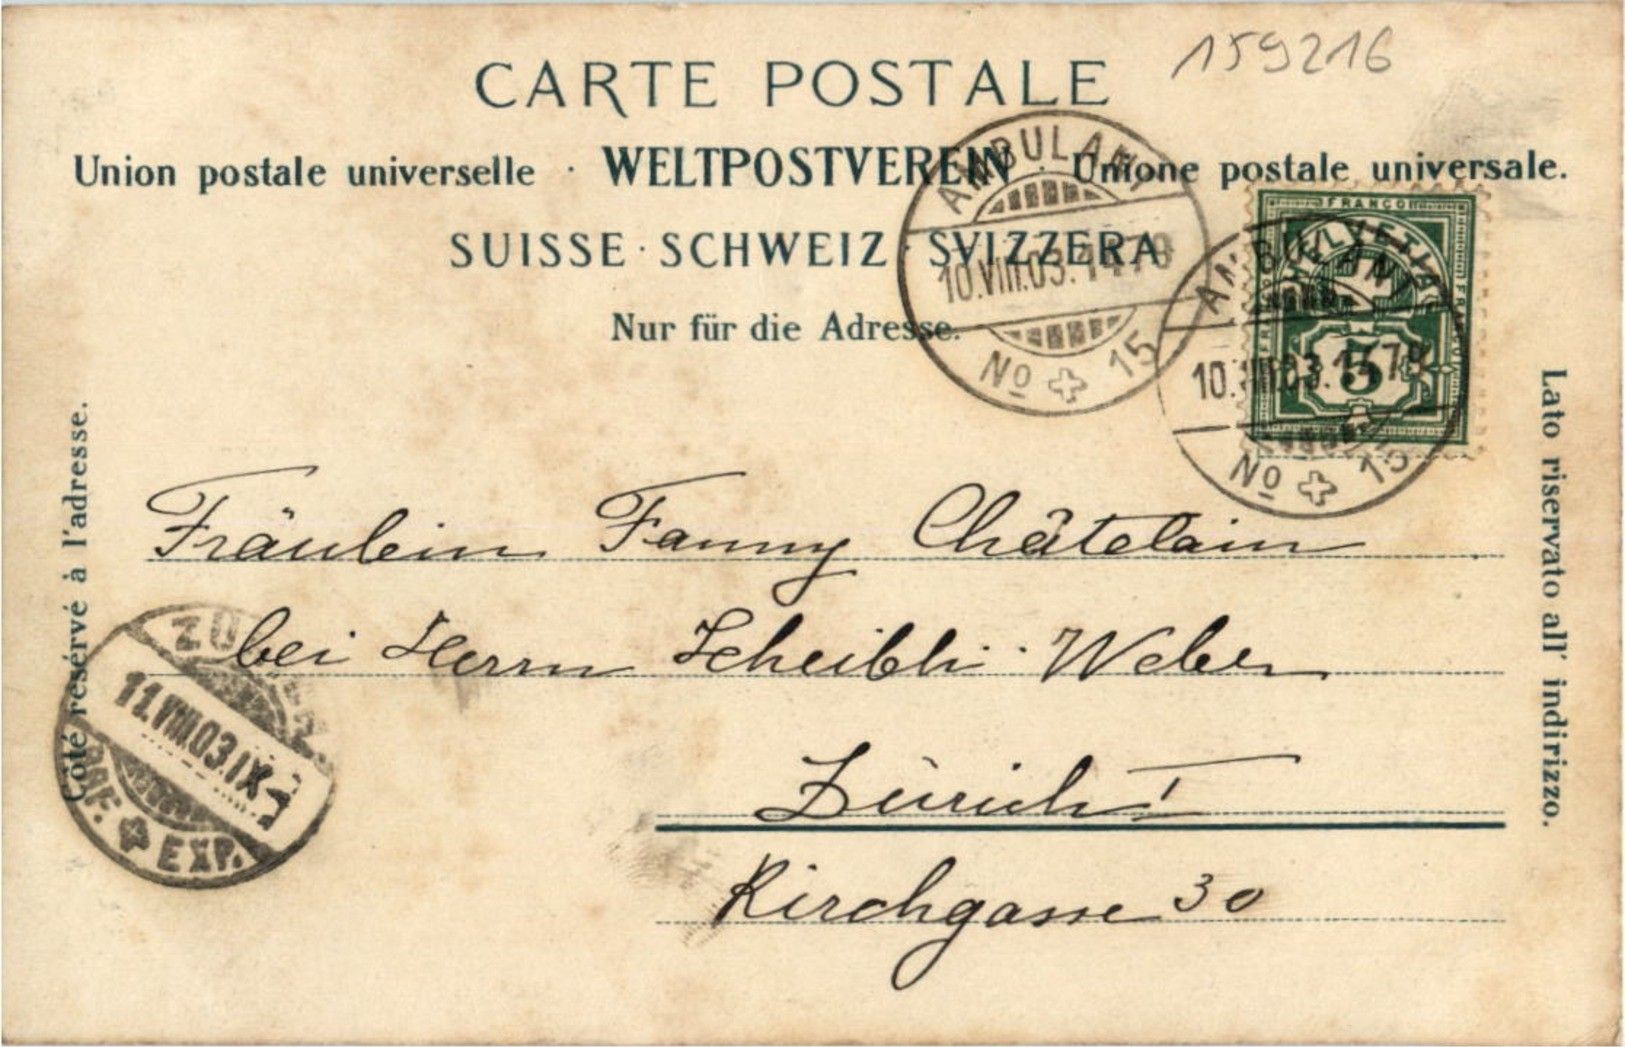 159216
CARTE POSTALE
Union postale universelle · WELTPOSTVEREIN · Unione postale universale.
SUISSE · SCHWEIZ · SVIZZERA
Nur für die Adresse.
AMBULANT
10.VIII.03.
No 15
FRANCO
HELVETIA
5
AMBULANT
10.VIII.03.
No 15
Côté reservé à l'adresse.
Lato riservato all' indirizzo.
Fräulein Fanny Châtelain
bei Herrn Scheibli-Weber
Zürich I
Kirchgasse 30
11.VIII.03.IX
EXP.